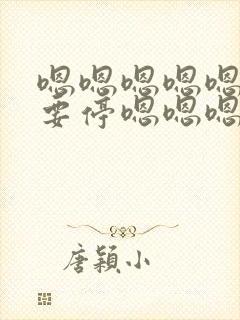 嗯嗯嗯嗯嗯
要停嗯嗯嗯
唐颖小